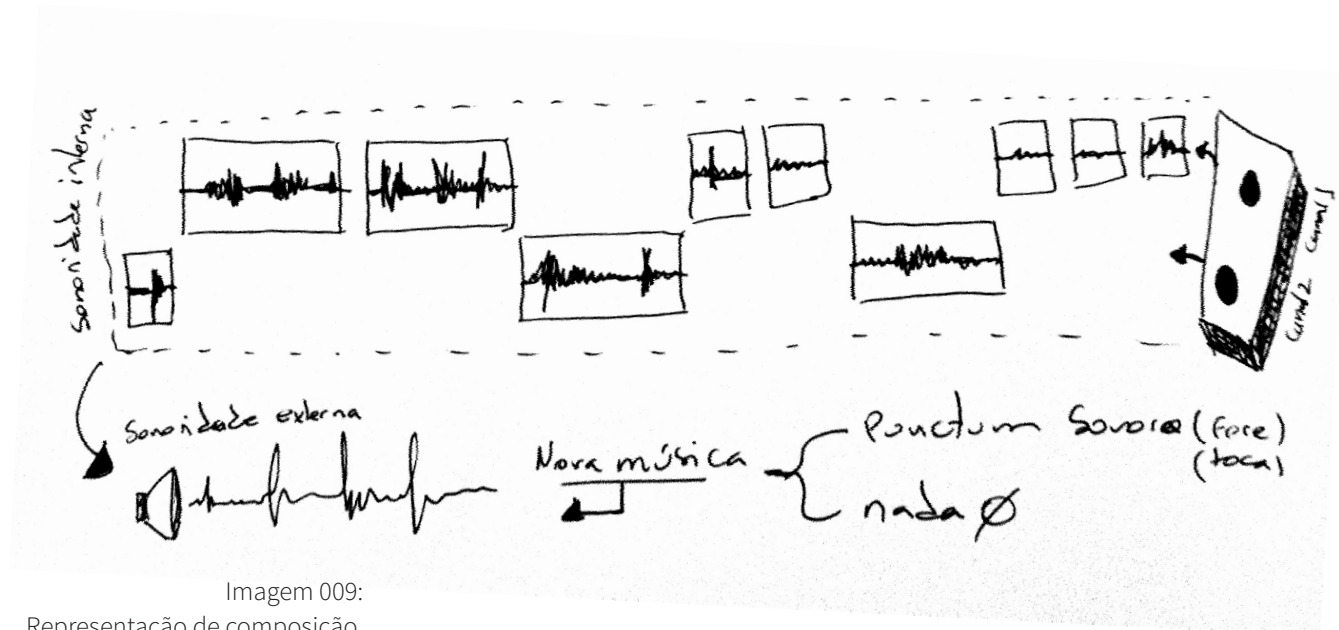 Sonoridade interna
canal 1
canal 2
Sonoridade externa
Nova música
Punctum Sonoro (fere)
(toca)
nada ∅
Imagem 009:
Representação de composição